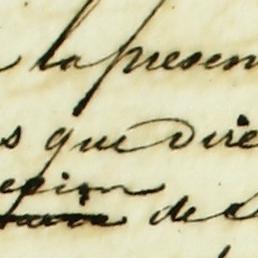 la presen
s que Dire
ecion
de